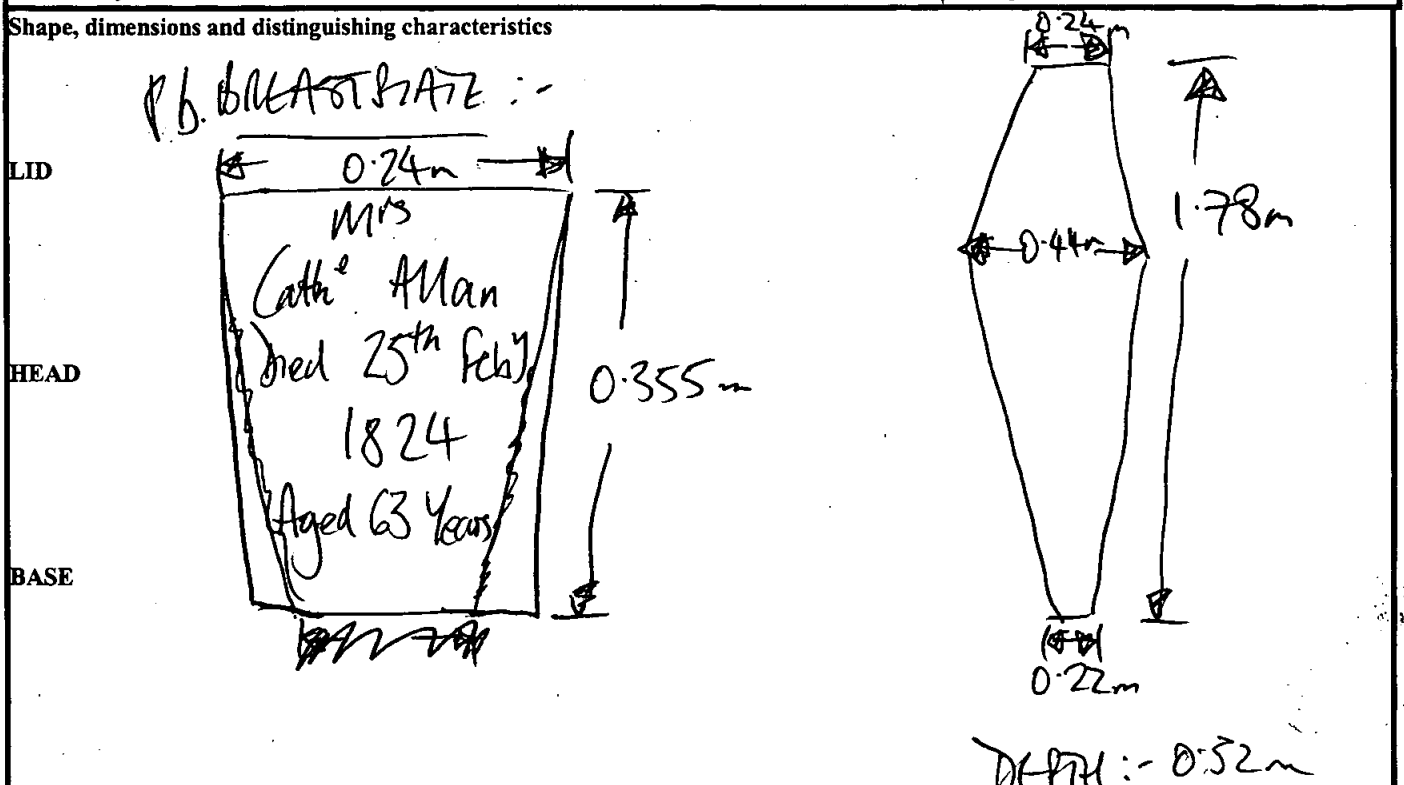 Shape, dimensions and distinguishing characteristics
P.b. BREASTPLATE :-
LID
0.24m
Mrs
Cathe Allan
Died 25th Feby
1824
Aged 63 Years
0.355m
HEAD
BASE
0.24m
1.78m
0.44m
0.22m
DEPTH :- 0.32m